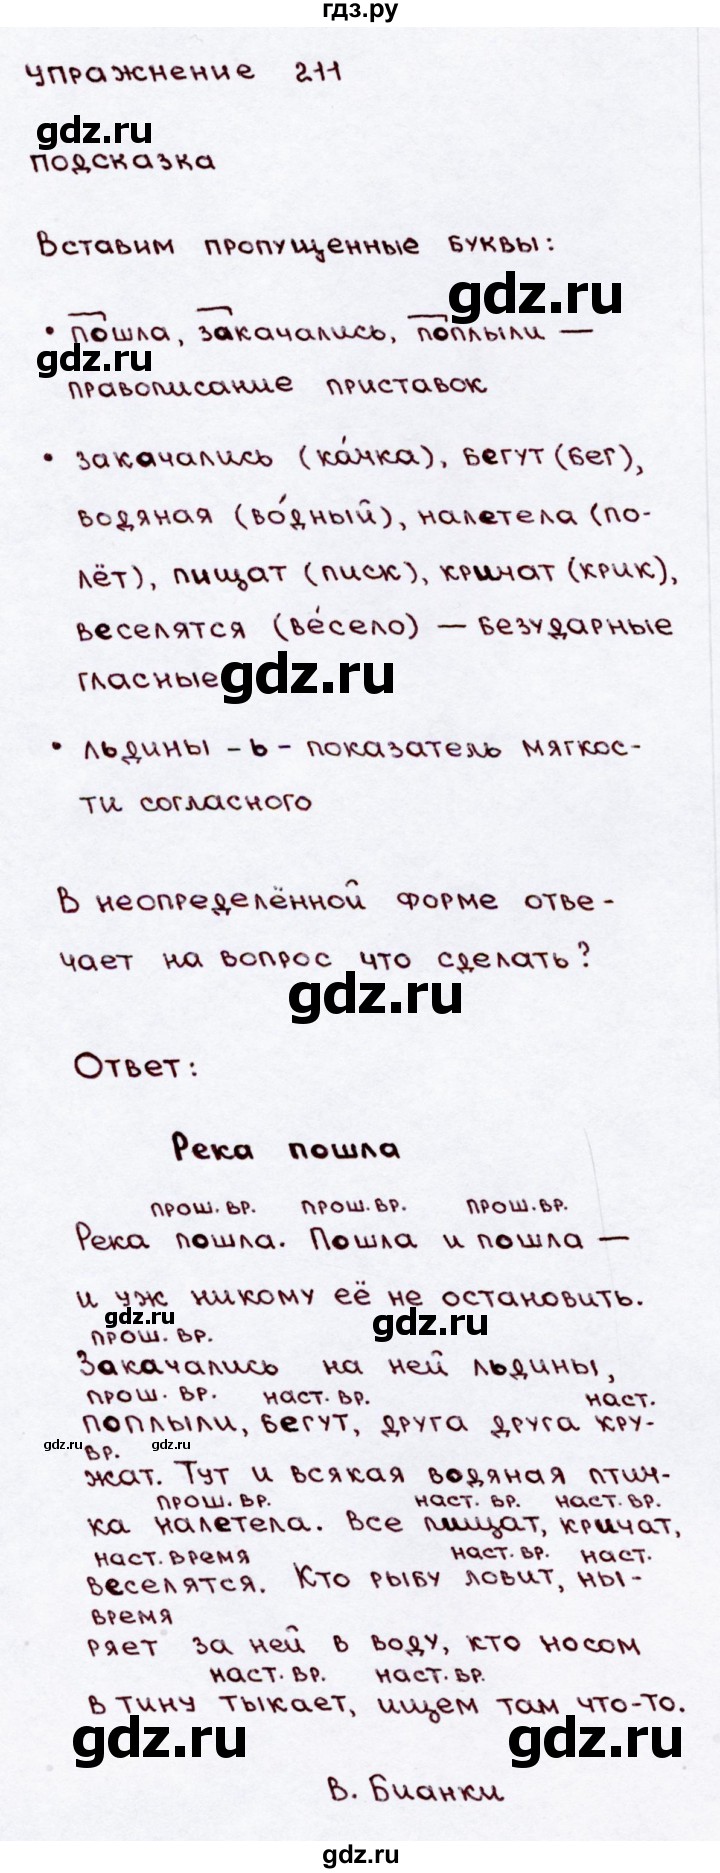 гдз.ру
упражнение 211
gdz.ru
подсказка
Вставим пропущенные буквы:
gdz.ru
• пошла, закачались, поплыли —
gdz.ru
правописание приставок
• закачались (ка́чка), бегут (бег),
водяная (во́дный), налетела (по-
лёт), пищат (писк), кричат (крик),
веселятся (ве́село) — безударные
гласные
gdz.ru
• льдины - ь - показатель мягкос-
ти согласного
В неопределённой форме отве-
чает на вопрос что сделать?
gdz.ru
Ответ:
Река пошла
прош. вр. прош. вр. прош. вр.
Река пошла. Пошла и пошла —
и уж никому её не остановить.
gdz.ru gdz.ru
прош. вр.
Закачались на ней льдины,
прош. вр. наст. вр. наст.
поплыли, бегут, друга друга кру-
gdz.ru вр. gdz.ru
жат. Тут и всякая водяная птич-
прош. вр. наст. вр. наст. вр.
ка налетела. Все пищат, кричат,
наст. время наст. вр. наст.
веселятся. Кто рыбу ловит, ны-
время
ряет за ней в воду, кто носом
наст. вр. наст. вр.
в тину тыкает, ищем там что-то.
gdz.ru gdz.ru
В. Бианки
gdz.ru